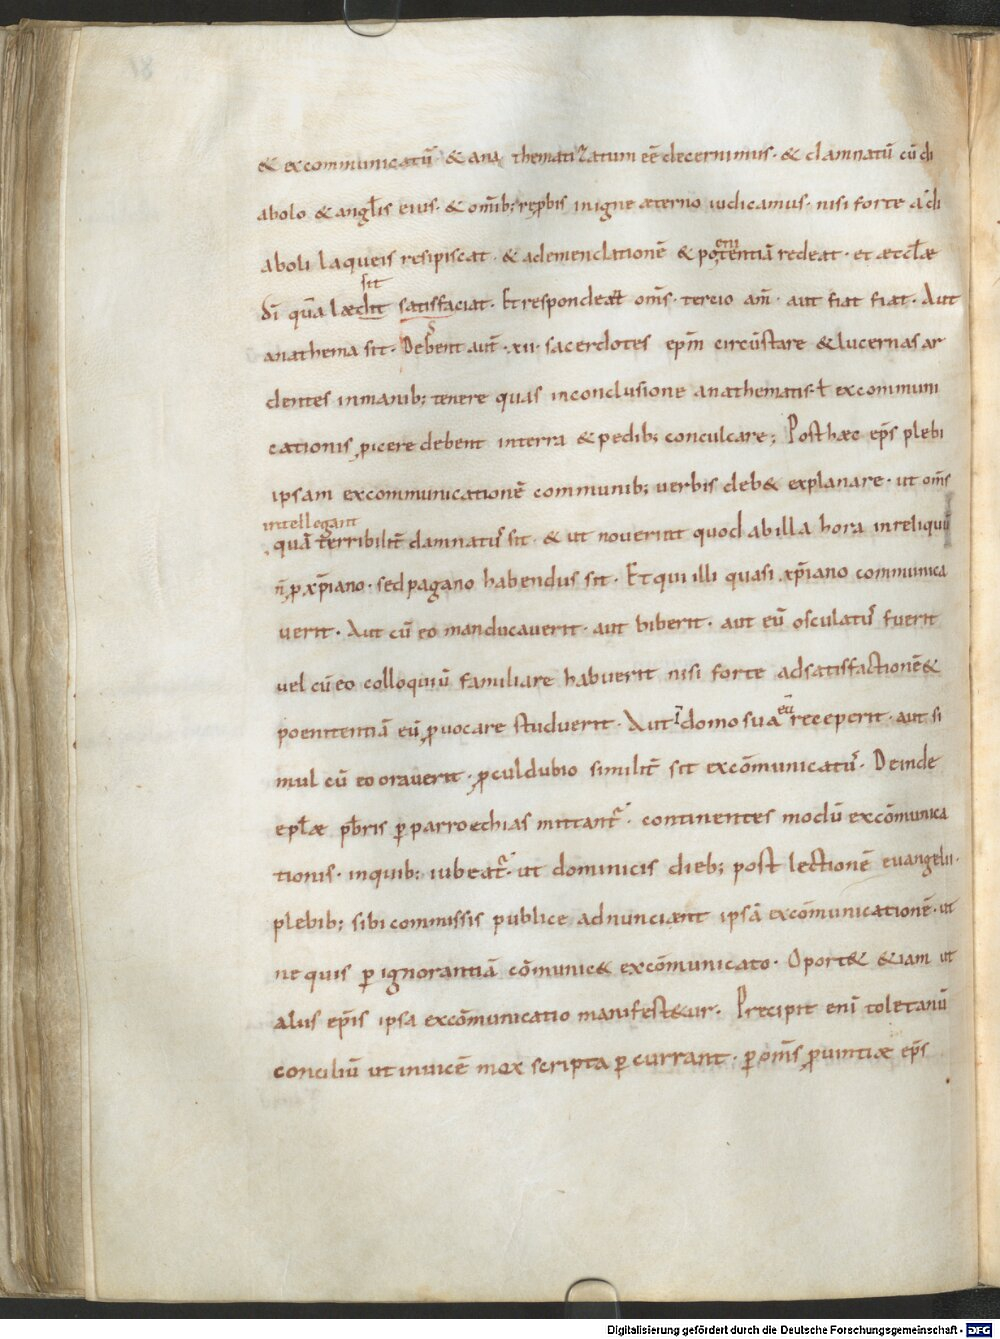 & excommunicatū· & ana thematizatum eē decernimus· & damnatū cū di
abolo & angłis eius· & omīb; rep̱bis in igne æterno iudicamus· nisi forte a di
aboli laqueis resipiscat· & ad emendationē & potentiā redeat· et æcctæ
eni
sit
dī quā lædit satisfaciat· Et respondeat om̄s· tercio am̄· aut fiat fiat· Aut
anathema sit· Debent aut̄· xii· sacerdotes ep̄m circūstare & lucernas ar
dentes in manib; tenere quas in conclusione anathematis ł excommuni
cationis p̱icere debent in terra & pedib; conculcare; Post hæc ep̄s plebi
ipsam excommunicationē communib; verbis deb& explanare· ut om̄s
intellegant
quā terribilit̄ damnatus sit· & ut noverint quod ab illa hora in reliquū
n̄ p̱ xp̄iano· sed pagano habendus sit· Et qui illi quasi xp̄iano communica
verit· Aut cū eo manducaverit· aut biberit· aut eū osculatus fuerit
vel cū eo colloquiū familiare habuerit nisi forte ad satisfactionē &
poenitentiā eū p̱vocare studuerit· Aut ī domo sua eū receperit· aut si
mul cū eo oraverit· p̱culdubio similit̄ sit excōmunicatus· Deinde
epłæ pb̄ris p̱ parroechias mittant· continentes modū excōmunica
tionis· in quib; iubeat· ut dominicis dieb; post lectionē evangelii·
plebib; sibi commissis publice adnunciant ipsā excōmunicationē· ut
ne quis p̱ ignorantiā cōmunic& excōmunicato· Oport& &iam ut
aliis ep̄is ipsa excōmunicatio manifest&ur· Precipit enī toletanū
conciliū ut invicē mox scripta p̱currant· p̱ om̄s p̱vintiæ ep̄s
Digitalisierung gefördert durch die Deutsche Forschungsgemeinschaft - DFG